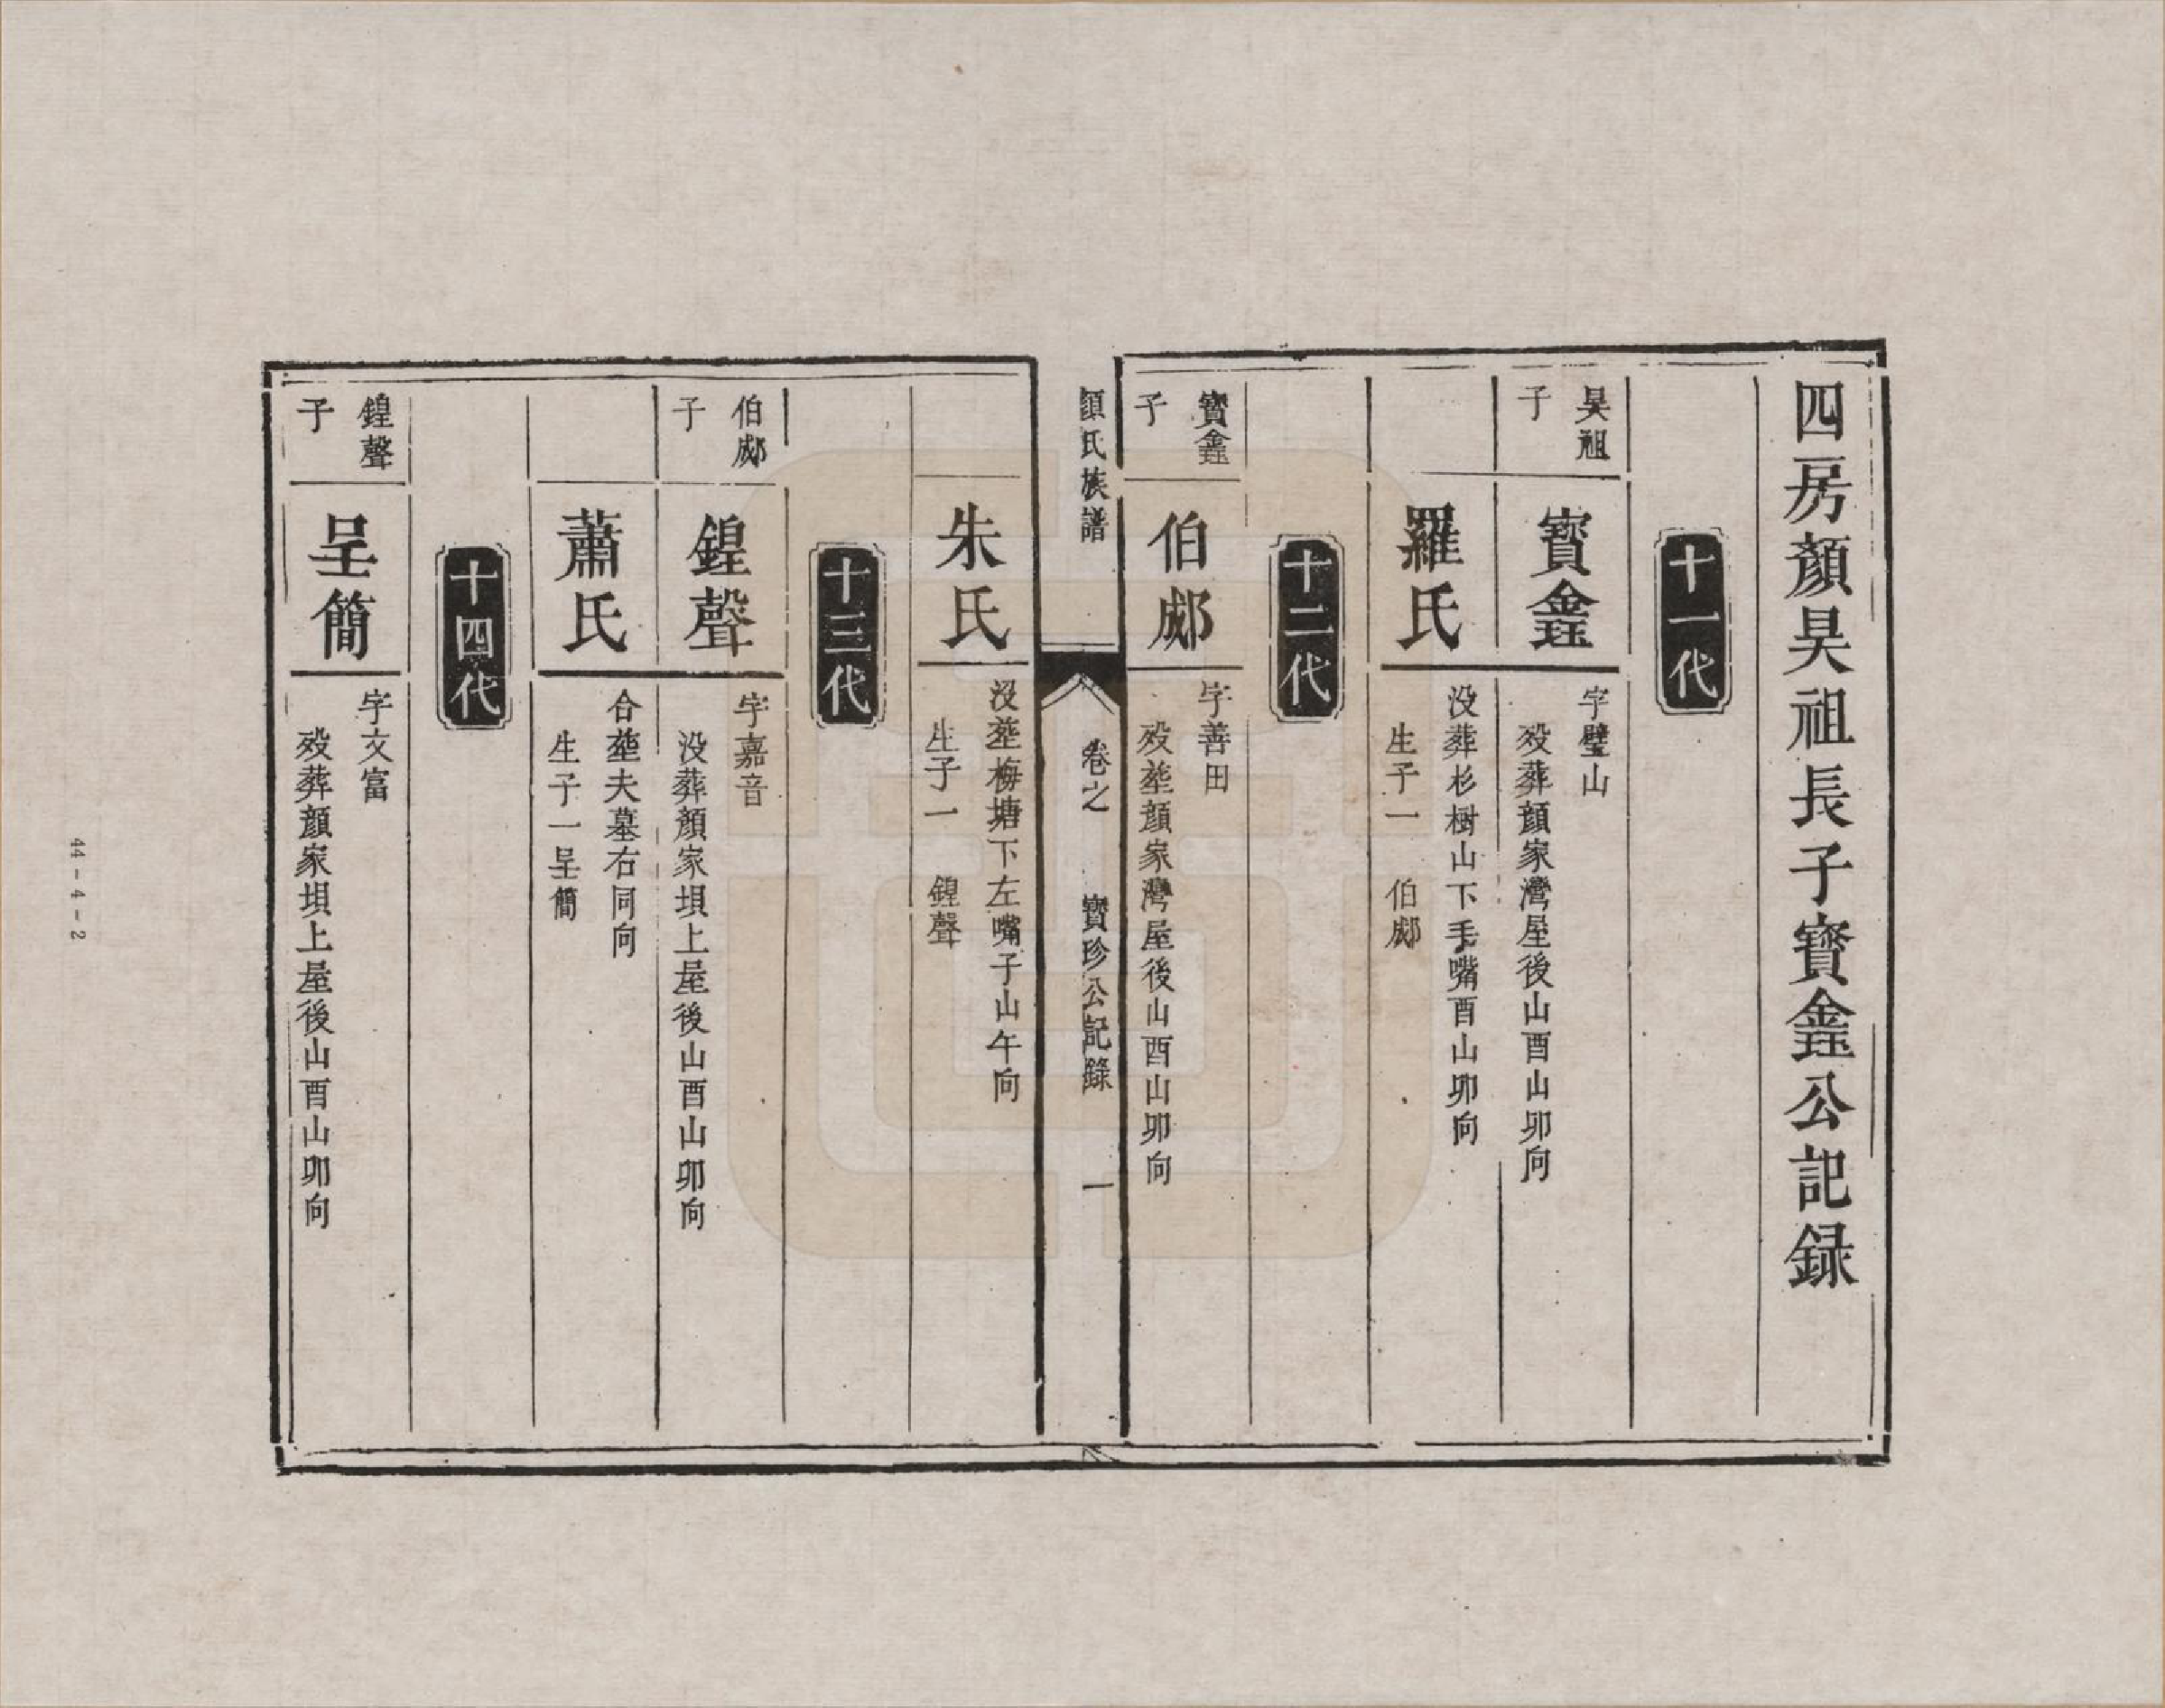 四房顏昊祖長子寶鑫公記録
十一代
昊祖
子
寶鑫
字璧山
殁葬顏家灣屋後山酉山卯向
羅氏
没葬杉樹山下毛嘴酉山卯向
生子一　伯郕
十二代
寶鑫
子
伯郕
字善田
殁塟顏家灣屋後山酉山卯向
顏氏族譜
卷之　寶珍公記錄　一
朱氏
没塟梅塘下左嘴子山午向
生子一　鍠聲
十三代
伯郕
子
鍠聲
字嘉音
没葬顏家垻上屋後山酉山卯向
蕭氏
合塟夫墓右同向
生子一呈簡
十四代
鍠聲
子
呈簡
字文富
殁葬顏家垻上屋後山酉山卯向
44-4-2